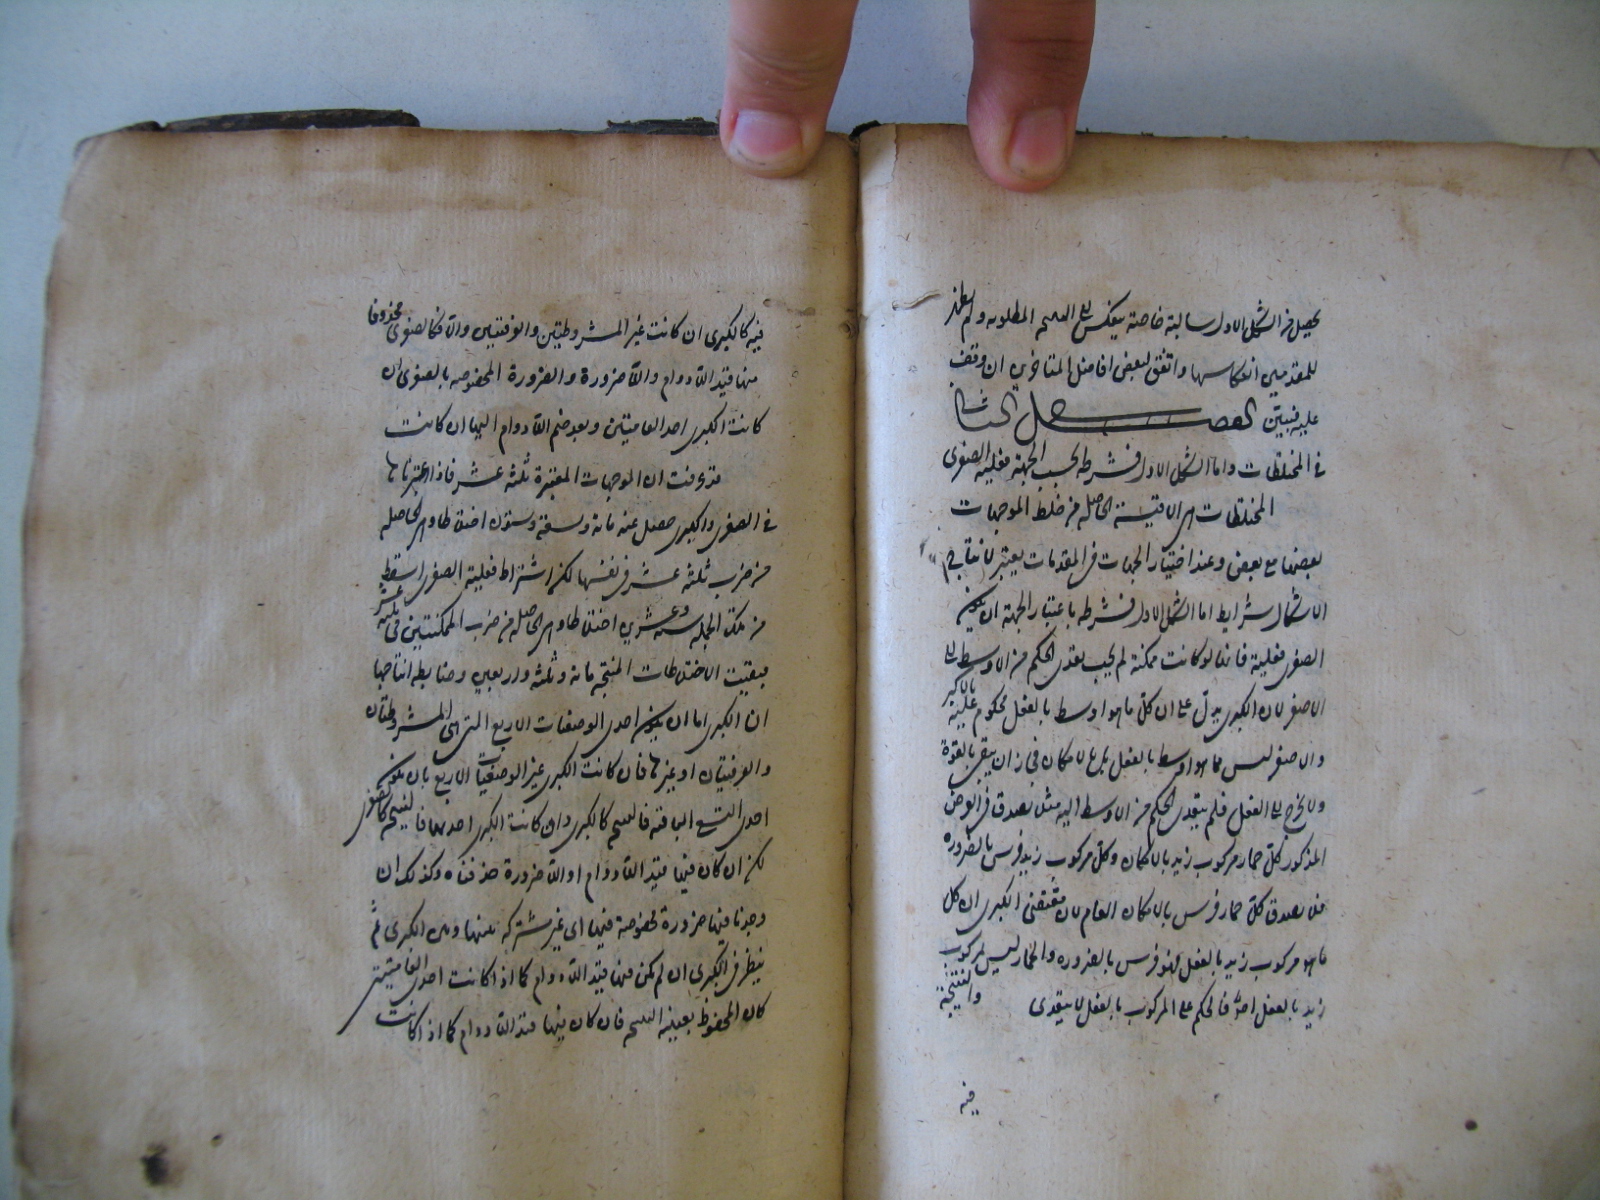 يحصل من الشكل الاول سالبة خاصة ينعكس الى النتيجة المطلوبة ولم يظهر
للمقدمين انعكاسها واتفق لبعض افاضل المتاخرين ان وقف
عليه فنبين الفصل الثالث
في المختلطات واما الشكل الاول فشرطه بحسب الجهة فعلية الصغرى
المختلطات هي الاقيسة الحاصلة من خلط الموجهات
بعضها مع بعض وعند اختبار الجهات في المقدمات يعتبر لانتاج
الاشكال شرايط اما الشكل الاول فشرطه باعتبار الجهة ان يكون
الصغرى فعلية فانها لو كانت ممكنة لم يجب تعدى الحكم من الاوسط الى
الاصغر لان الكبرى يدل على ان كل ما هو اوسط بالفعل محكوم عليه بالاكبر
والاصغر ليس مما هو اوسط بالفعل بل بالامكان فجاز ان يبقى بالقوة
ولا يخرج الى الفعل فلم يتعدى الحكم من الاوسط اليه مثلا يصدق في الفرض
المذكور كل حمار مركوب زيد بالامكان وكل مركوب زيد فرس بالضرورة
ولا يصدق كل حمار فرس بالامكان العام لان مقتضى الكبرى ان كل
ما هو مركوب زيد بالفعل فهو فرس بالضرورة والحمار ليس بمركوب
زيد بالفعل اصلا فالحكم على المركوب بالفعل لا يتعدى والنتيجة
فيه
فيه كالكبرى ان كانت غير المشروطتين والعرفيتين والا فكالصغرى محذوفا
منها قيد اللادوام واللاضرورة والضرورة المخصوصة بالصغرى ان
كانت الكبرى احدى العامتين وبعد ضم اللادوام اليها ان كانت
قد عرفت ان الموجهات المعتبرة ثلثة عشر فاذا اعتبرناها
في الصغرى والكبرى حصل منه مائة وتسعة وستون اختلاطا وهي الحاصلة
من ضرب ثلثة عشر في نفسها لكن اشتراط فعلية الصغرى اسقط
من تلك الجملة ستة وعشرين اختلاطا وهي الحاصلة من ضرب الممكنتين في ثلثة عشر
فبقيت الاختلاطات المنتجة مائة وثلثة واربعين وضابطه انتاجها
ان الكبرى اما ان يكون احدى الوصفيات الاربع التي هي المشروطتان
والعرفيتان او غيرها فان كانت الكبرى غير الوصفيات الاربع بان يكون
احدى التسع الباقية فالنتيجة كالكبرى وان كانت الكبرى احديها فالنتيجة كالصغرى
لكن ان كان فيها قيد اللادوام او اللاضرورة حذفناه وكذلك ان
وجدنا فيها ضرورة مخصوصة فيها اي غير مشتركة بينها وبين الكبرى ثم
ينظر في الكبرى ان لم يكن فيها قيد اللادوام كما اذا كانت احدى العامتين
كان المحفوظ بعينه النتيجة فان كان فيها قيد اللادوام كما اذا كانت